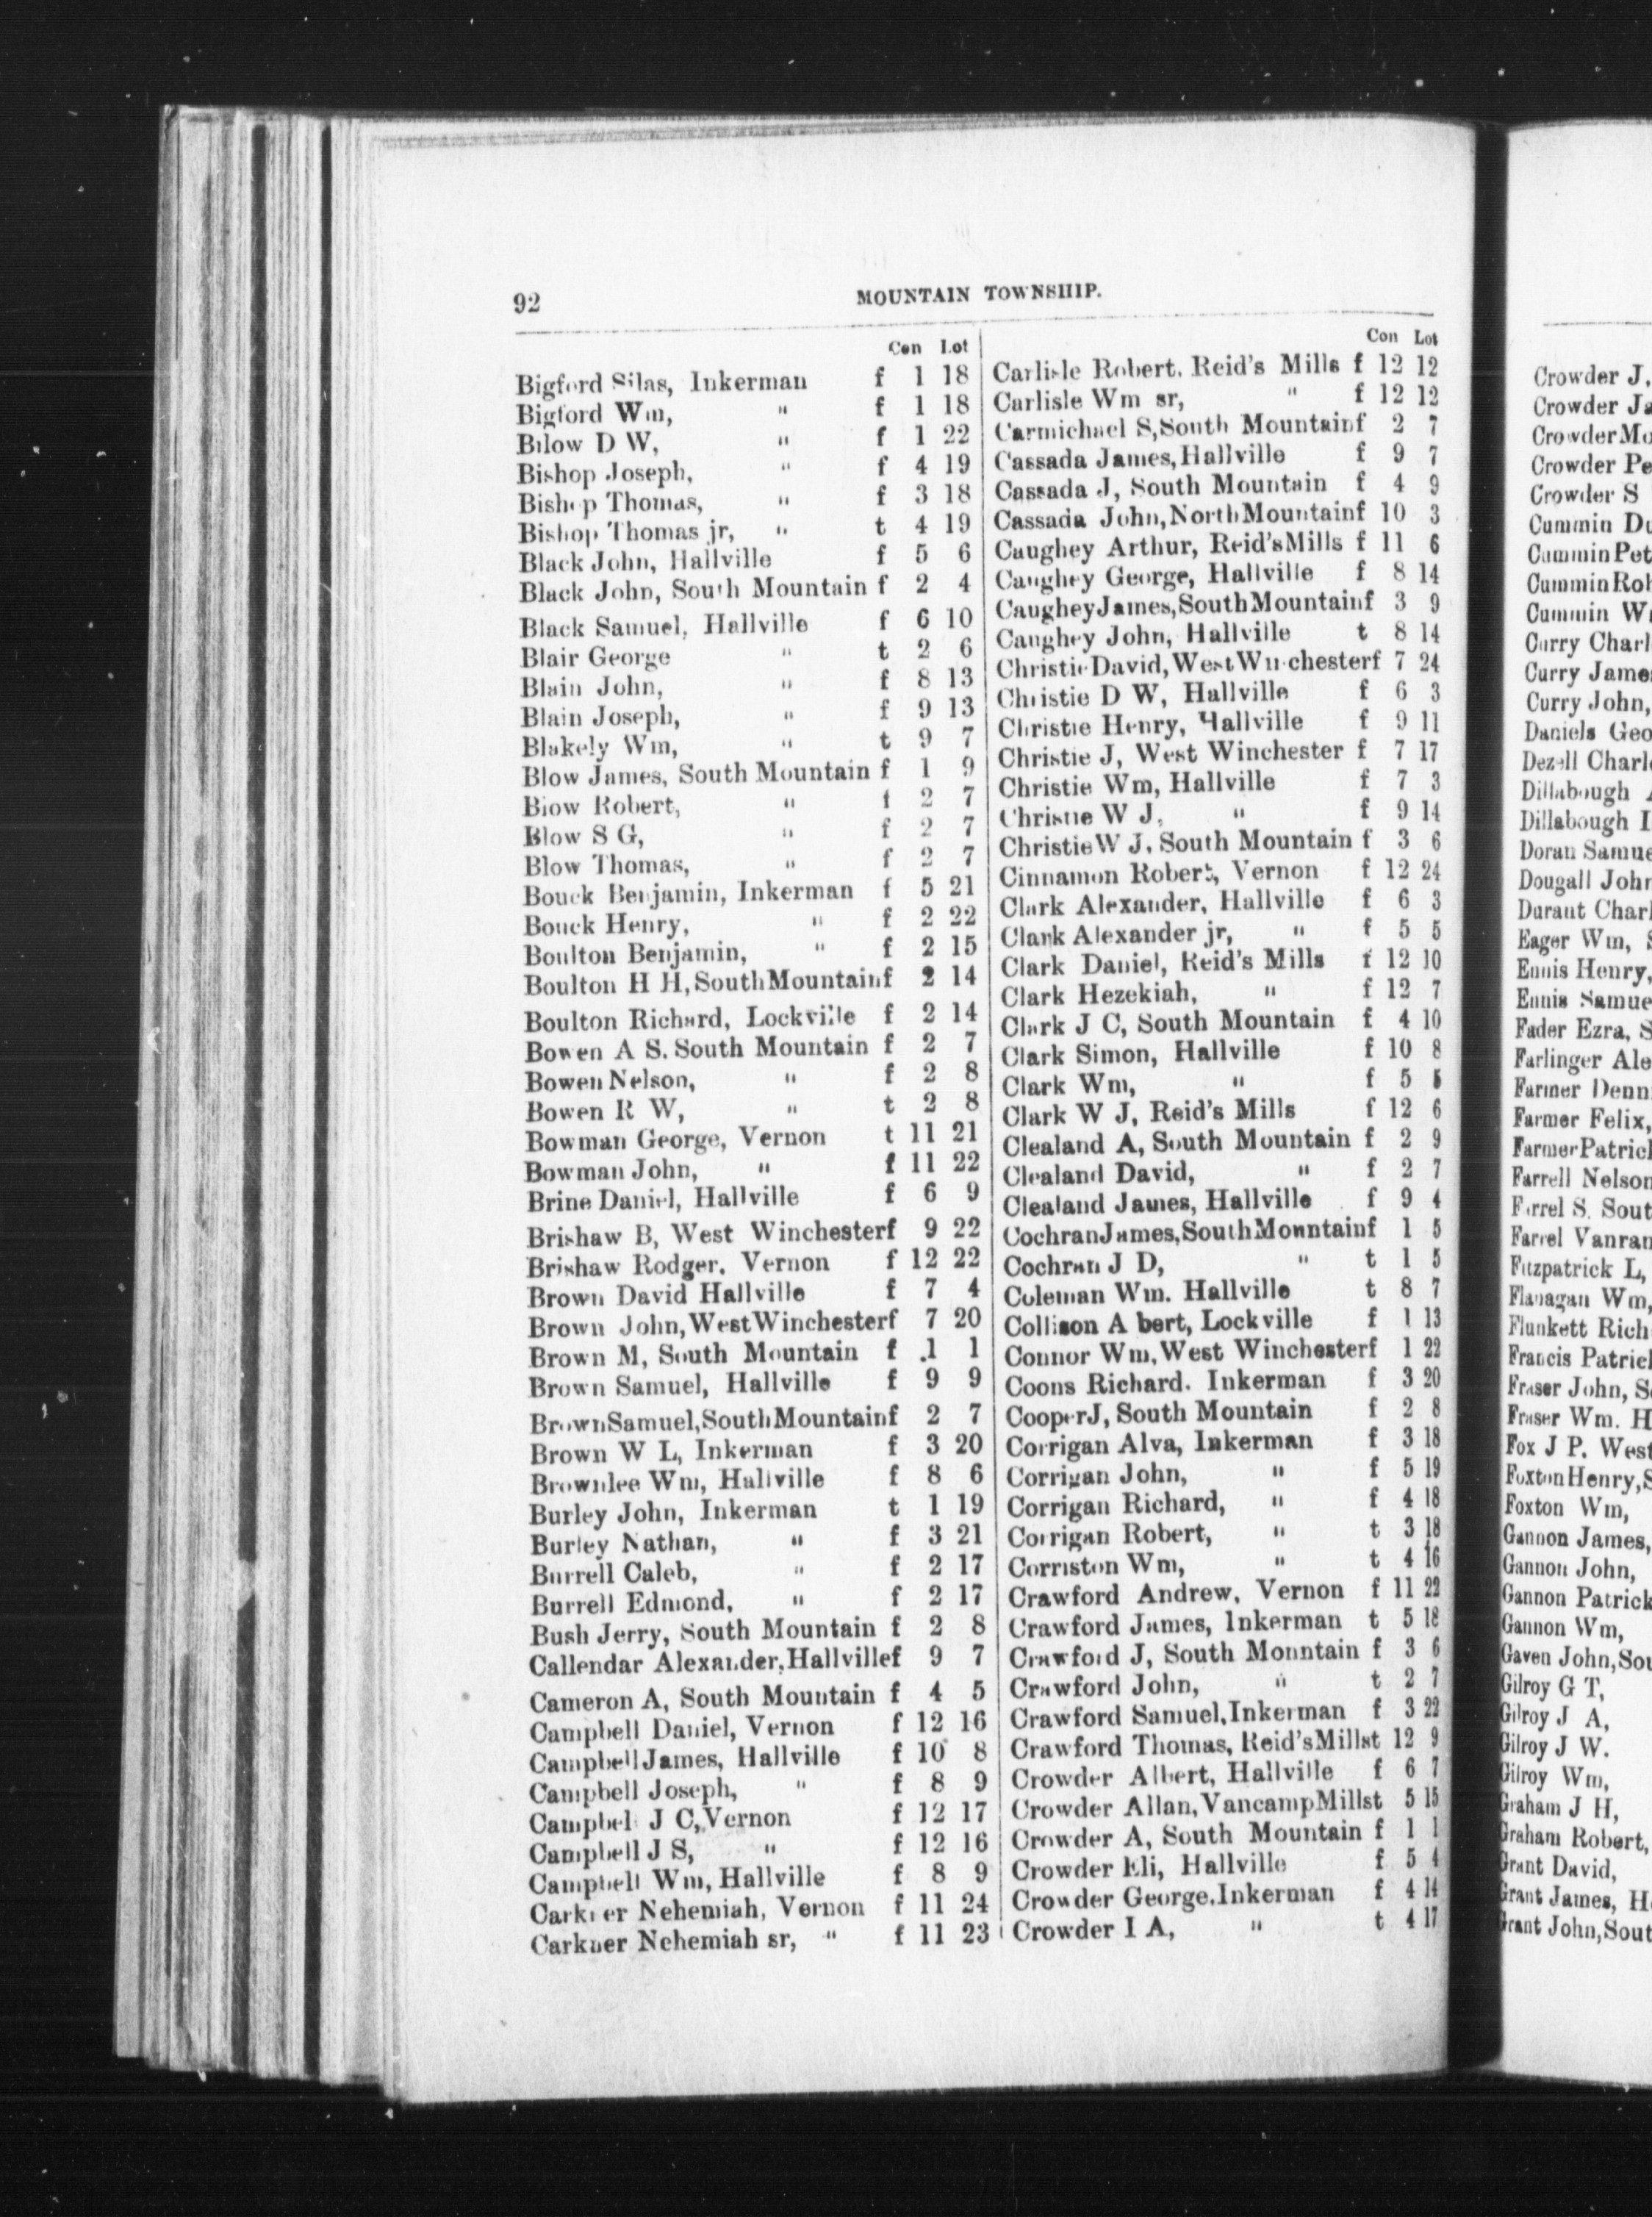 92
MOUNTAIN TOWNSHIP.
Con Lot
Bigford Silas, Inkerman f 1 18
Bigford Wm, " f 1 18
Bilow D W, " f 1 22
Bishop Joseph, " f 4 19
Bishop Thomas, " f 3 18
Bishop Thomas jr, " t 4 19
Black John, Hallville f 5 6
Black John, South Mountain f 2 4
Black Samuel, Hallville f 6 10
Blair George " t 2 6
Blain John, " f 8 13
Blain Joseph, " f 9 13
Blakely Wm, " t 9 7
Blow James, South Mountain f 1 9
Blow Robert, " f 2 7
Blow S G, " f 2 7
Blow Thomas, " f 2 7
Bouck Benjamin, Inkerman f 5 21
Bouck Henry, " f 2 22
Boulton Benjamin, " f 2 15
Boulton H H, SouthMountainf 2 14
Boulton Richard, Lockville f 2 14
Bowen A S. South Mountain f 2 7
Bowen Nelson, " f 2 8
Bowen R W, " t 2 8
Bowman George, Vernon t 11 21
Bowman John, " f 11 22
Brine Daniel, Hallville f 6 9
Brishaw B, West Winchesterf 9 22
Brishaw Rodger. Vernon f 12 22
Brown David Hallville f 7 4
Brown John, WestWinchesterf 7 20
Brown M, South Mountain f 1 1
Brown Samuel, Hallville f 9 9
BrownSamuel,SouthMountainf 2 7
Brown W L, Inkerman f 3 20
Brownlee Wm, Hallville f 8 6
Burley John, Inkerman t 1 19
Burley Nathan, " f 3 21
Burrell Caleb, " f 2 17
Burrell Edmond, " f 2 17
Bush Jerry, South Mountain f 2 8
Callendar Alexander,Hallvillef 9 7
Cameron A, South Mountain f 4 5
Campbell Daniel, Vernon f 12 16
Campbell James, Hallville f 10 8
Campbell Joseph, " f 8 9
Campbel J C, Vernon f 12 17
Campbell J S, " f 12 16
Campbell Wm, Hallville f 8 9
Carkner Nehemiah, Vernon f 11 24
Carkner Nehemiah sr, " f 11 23
Con Lot
Carlisle Robert. Reid's Mills f 12 12
Carlisle Wm sr, " f 12 12
Carmichael S,South Mountainf 2 7
Cassada James, Hallville f 9 7
Cassada J, South Mountain f 4 9
Cassada John, NorthMountainf 10 3
Caughey Arthur, Reid'sMills f 11 6
Caughey George, Hallville f 8 14
CaugheyJames,SouthMountainf 3 9
Caughey John, Hallville t 8 14
Christie David, WestWinchesterf 7 24
Christie D W, Hallville f 6 3
Christie Henry, Hallville f 9 11
Christie J, West Winchester f 7 17
Christie Wm, Hallville f 7 3
Christie W J, " f 9 14
ChristieW J, South Mountain f 3 6
Cinnamon Robert, Vernon f 12 24
Clark Alexander, Hallville f 6 3
Clark Alexander jr, " f 5 5
Clark Daniel, Reid's Mills f 12 10
Clark Hezekiah, " f 12 7
Clark J C, South Mountain f 4 10
Clark Simon, Hallville f 10 8
Clark Wm, " f 5 5
Clark W J, Reid's Mills f 12 6
Clealand A, South Mountain f 2 9
Clealand David, " f 2 7
Clealand James, Hallville f 9 4
CochranJames,SouthMountainf 1 5
Cochran J D, " t 1 5
Coleman Wm. Hallville t 8 7
Collison A bert, Lockville f 1 13
Connor Wm, West Winchesterf 1 22
Coons Richard. Inkerman f 3 20
CooperJ, South Mountain f 2 8
Corrigan Alva, Inkerman f 3 18
Corrigan John, " f 5 19
Corrigan Richard, " f 4 18
Corrigan Robert, " t 3 18
Corriston Wm, " t 4 16
Crawford Andrew, Vernon f 11 22
Crawford James, Inkerman t 5 18
Crawford J, South Mountain f 3 6
Crawford John, " t 2 7
Crawford Samuel, Inkerman f 3 22
Crawford Thomas, Reid'sMillst 12 9
Crowder Albert, Hallville f 6 7
Crowder Allan, VancampMillst 5 15
Crowder A, South Mountain f 1 1
Crowder Eli, Hallville f 5 4
Crowder George, Inkerman f 4 14
Crowder I A, " t 4 17
Crowder J,
Crowder
Crowder
Crowder
Crowder S
Cummin
Cummin
Cummin
Cummin
Curry
Curry
Curry John,
Daniels
Dezell
Dillabough
Dillabough
Doran
Dougall
Durant
Eager Wm,
Ennis Henry,
Ennis
Fader Ezra,
Farlinger
Farmer
Farmer Felix,
Farmer
Farrell
Farrel S.
Farrel
Fitzpatrick L,
Flanagan Wm,
Flunkett
Francis
Fraser John,
Fraser Wm.
Fox J P.
Foxton Henry,
Foxton Wm,
Gannon James,
Gannon John,
Gannon
Gannon Wm,
Gaven John,
Gilroy G T,
Gilroy J A,
Gilroy J W.
Gilroy Wm,
Graham J H,
Graham Robert,
Grant David,
Grant James,
Grant John,